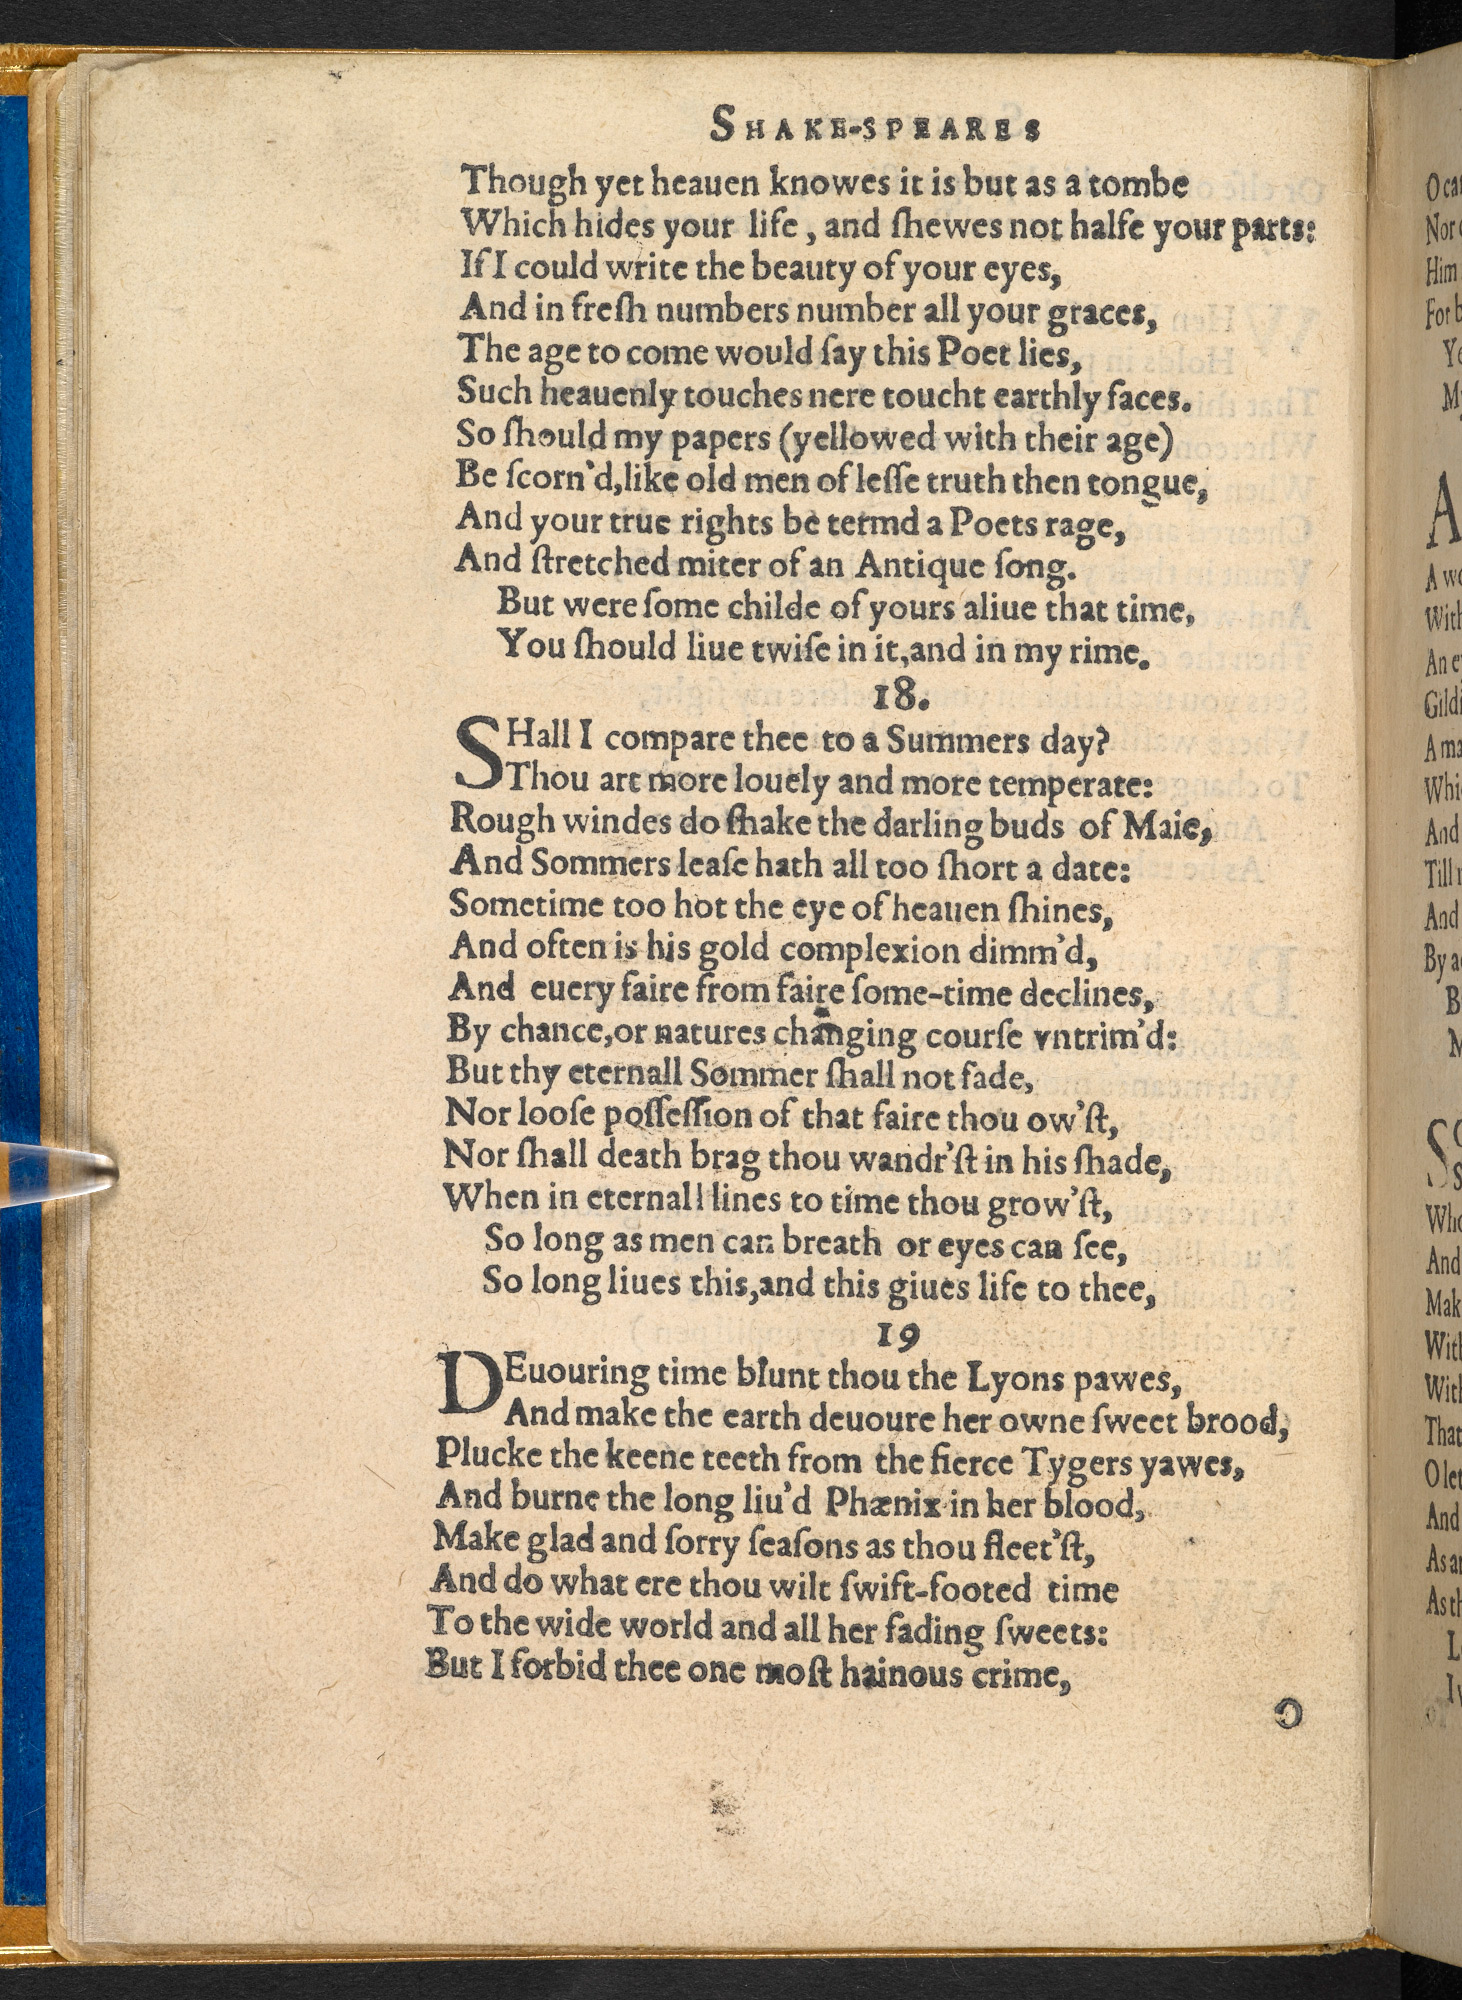 SHAKE-SPEARES
Though yet heauen knowes it is but as a tombe
Which hides your life , and ſhewes not halfe your parts:
If I could write the beauty of your eyes,
And in freſh numbers number all your graces,
The age to come would ſay this Poet lies,
Such heauenly touches nere toucht earthly faces.
So ſhould my papers (yellowed with their age)
Be ſcorn'd,like old men of leſſe truth then tongue,
And your true rights be termd a Poets rage,
And ſtretched miter of an Antique ſong.
But were ſome childe of yours aliue that time,
You ſhould liue twiſe in it,and in my rime.
18.
SHall I compare thee to a Summers day?
Thou art more louely and more temperate:
Rough windes do ſhake the darling buds of Maie,
And Sommers leaſe hath all too ſhort a date:
Sometime too hot the eye of heauen ſhines,
And often is his gold complexion dimm'd,
And euery faire from faire ſome-time declines,
By chance,or natures changing courſe vntrim'd:
But thy eternall Sommer ſhall not fade,
Nor looſe poſſeſſion of that faire thou ow'ſt,
Nor ſhall death brag thou wandr'ſt in his ſhade,
When in eternall lines to time thou grow'ſt,
So long as men can breath or eyes can ſee,
So long liues this,and this giues life to thee,
19
DEuouring time blunt thou the Lyons pawes,
And make the earth deuoure her owne ſweet brood,
Plucke the keene teeth from the fierce Tygers yawes,
And burne the long liu'd Phænix in her blood,
Make glad and ſorry ſeaſons as thou fleet'ſt,
And do what ere thou wilt ſwift-footed time
To the wide world and all her fading ſweets:
But I forbid thee one moſt hainous crime,
O
O
Nor
Him
For
A
A
With
An
Gild
A
Whi
And
Till
And
By
B
M
S
Who
And
Mak
With
With
That
O let
And
As
As
L
I